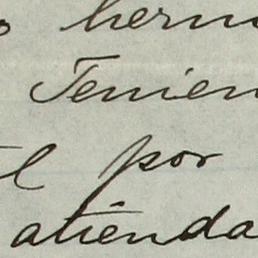 herm
Tenien
l por
atienda